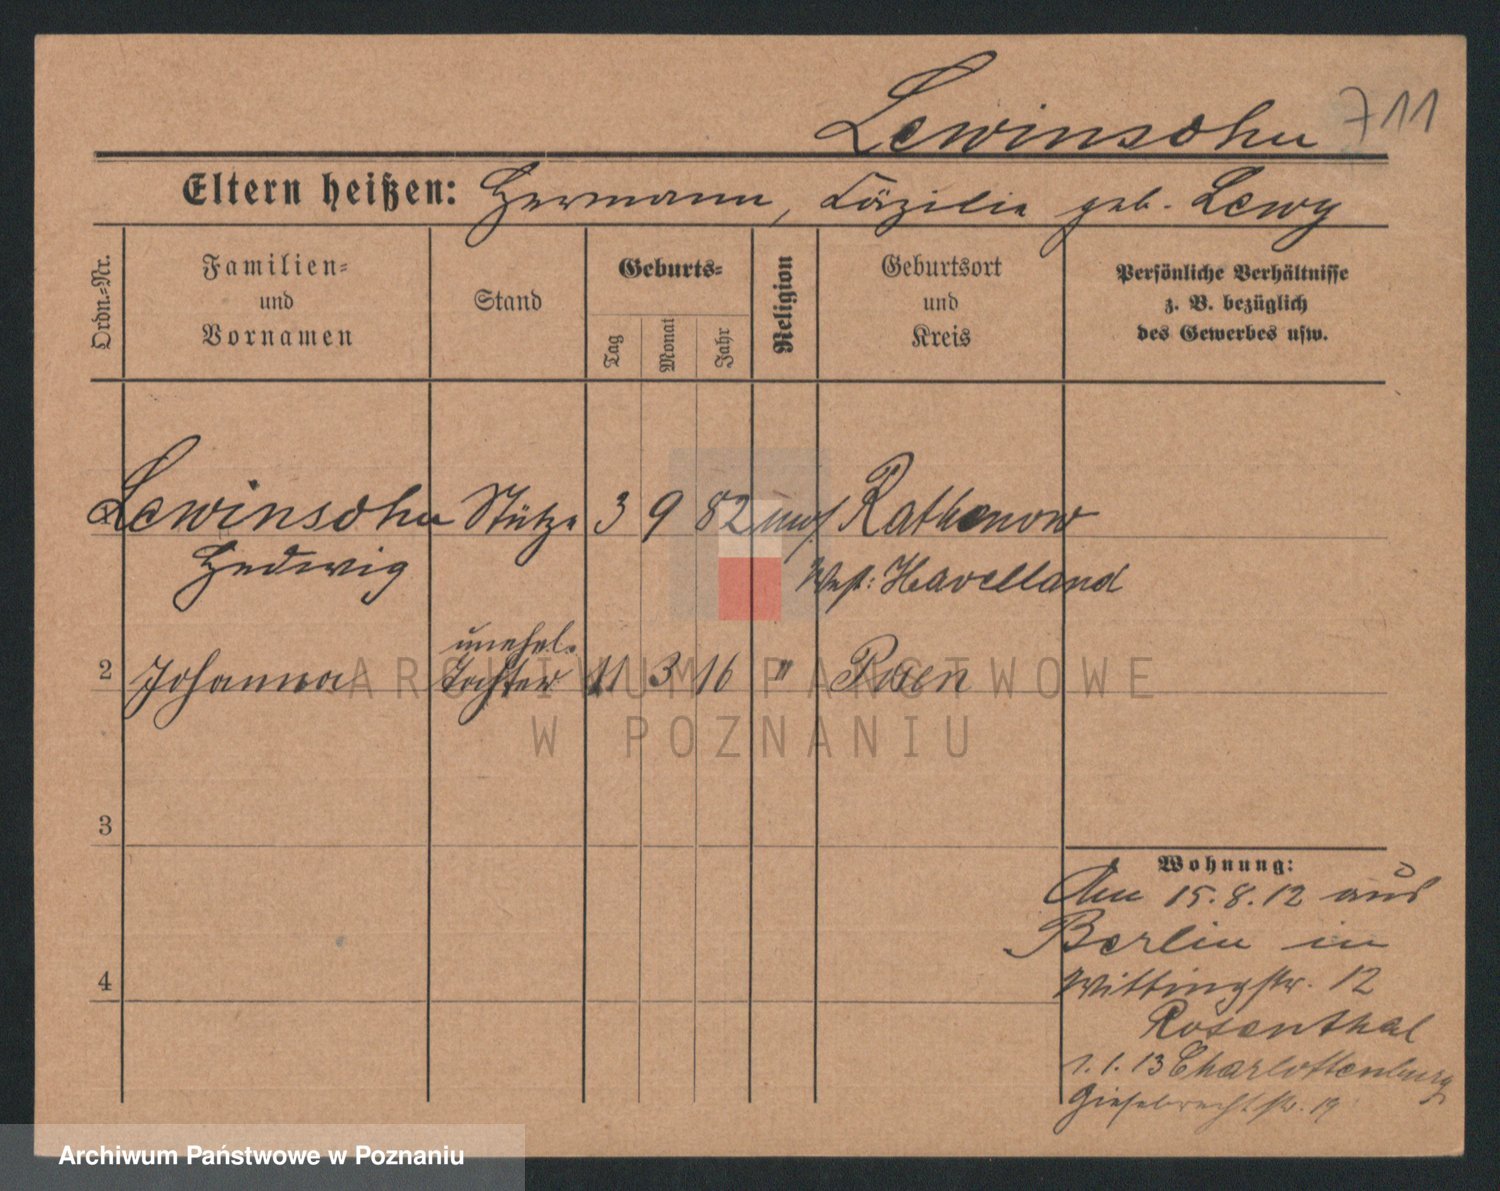 Lewinsohn 711
Eltern heißen: Hermann, Cäzilie geb. Lewy
Ordn.-Nr.
Familien-
und
Vornamen
Stand
Geburts-
Tag
Monat
Jahr
Religion
Geburtsort
und
Kreis
Persönliche Verhältnisse
z. B. bezüglich
des Gewerbes usw.
Lewinsohn Stütze 3 9 82 mos Rathenow
Hedwig West: Havelland
unehel.
2 Johanna Tochter 11 3 16 " Posen
3
4
Wohnung:
Am 15.8.12 aus
Berlin in
Wittingstr. 12
Rosenthal
1.1.13 Charlottenburg
Giesebrechtstr. 19
ARCHIWUM PAŃSTWOWE
W POZNANIU
Archiwum Państwowe w Poznaniu